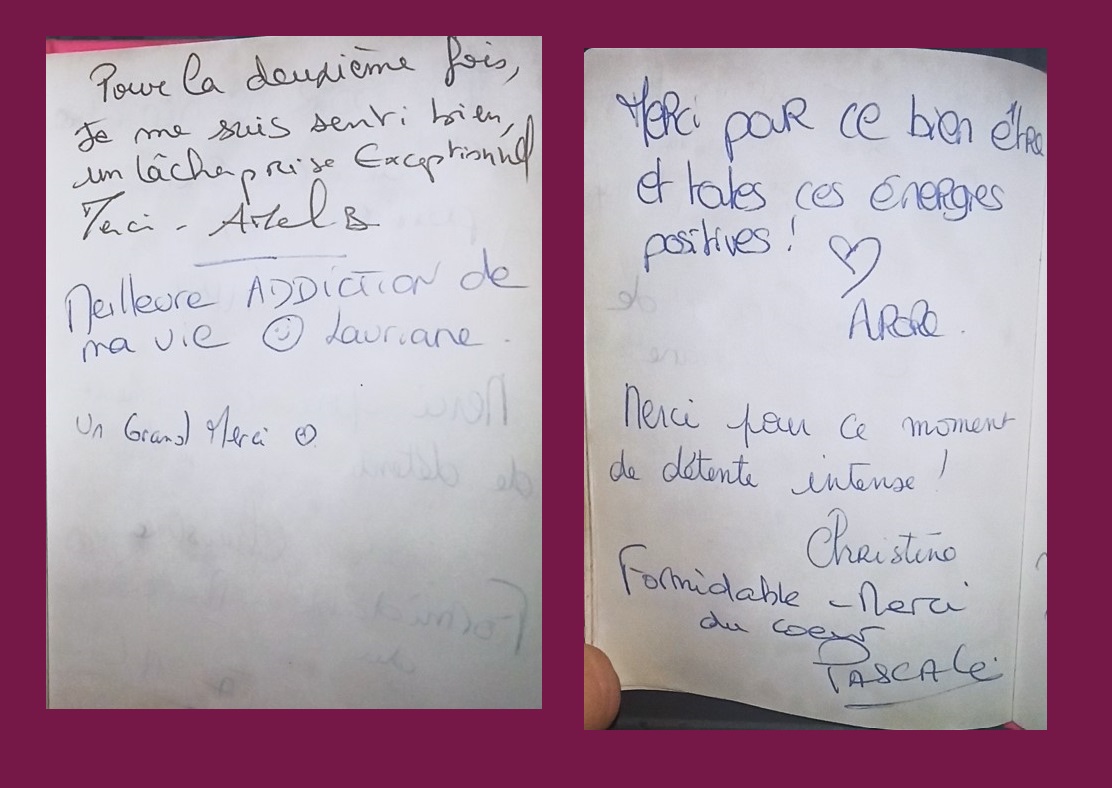 Pour la deuxième fois,
Je me suis senti bien,
un lâcher prise Exceptionnel
Merci -
Meilleure ADDICTION de
ma vie ☺ Lauriane.
Un Grand Merci ☺
Merci pour ce bien être
et toutes ces énergies
positives ! ♡
Merci pour ce moment
de détente intense !
Christine
Formidable - Merci
du coeur
PASCALE